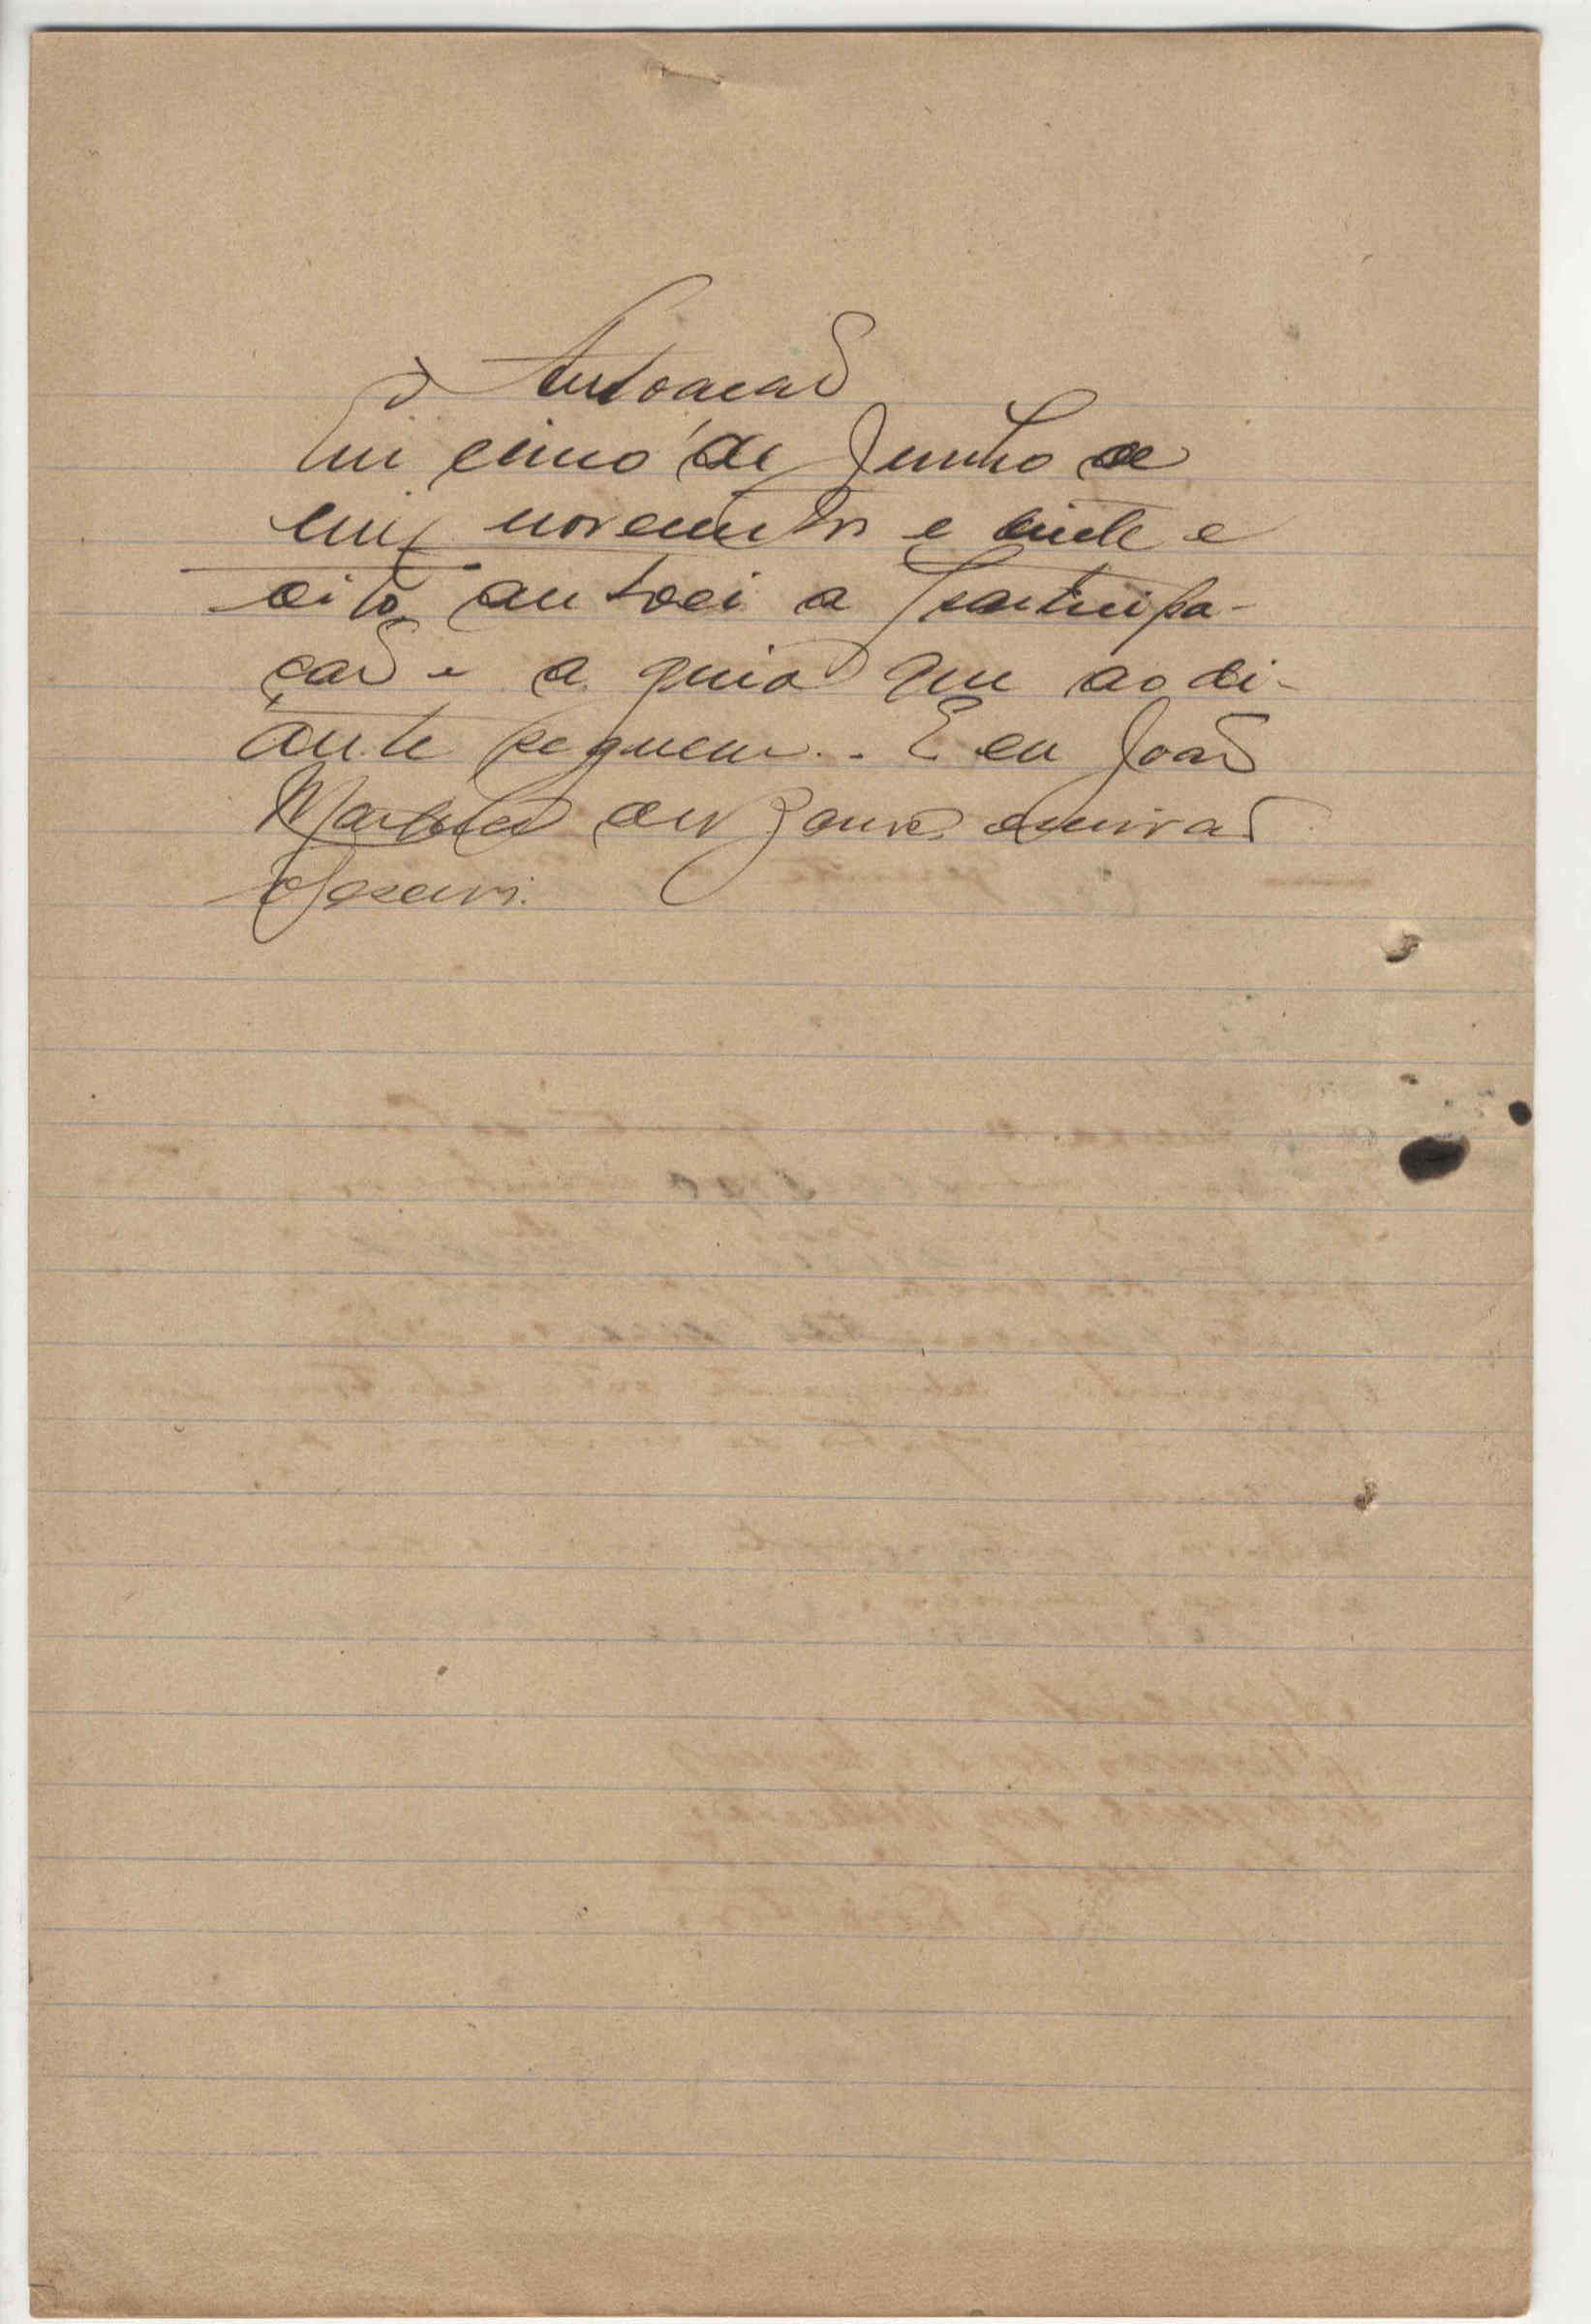 Autoacaõ
Em cinco de Junho de
mil novecentos e vinte e
oito autoei a participa-
çaõ e a guia que ao di-
ante seguem. E eu Joaõ
Martins de escrivaõ
o escrevi.